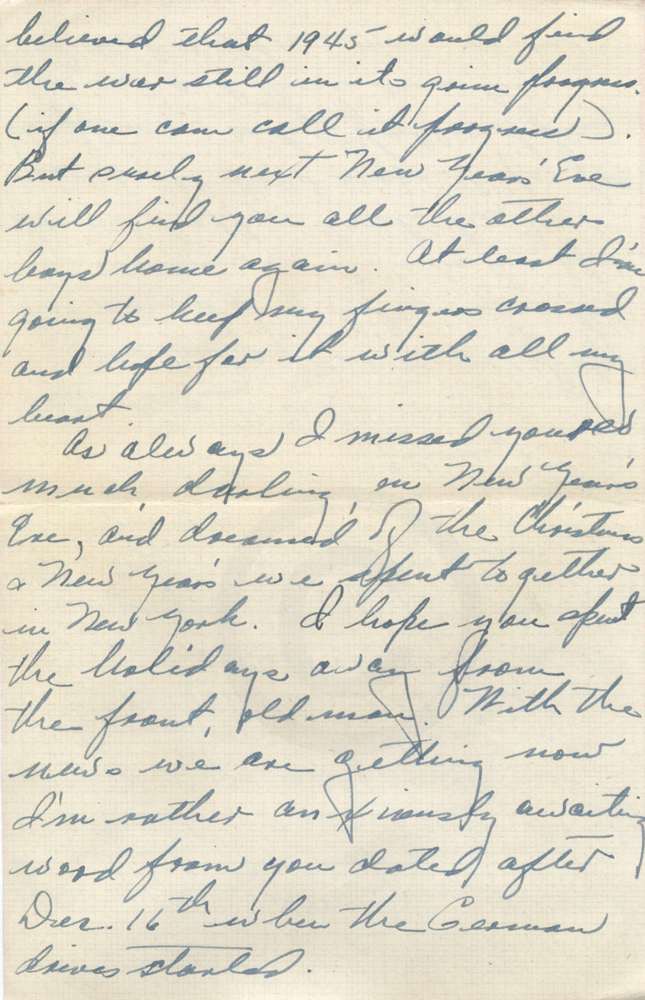 believed that 1945 would find
the war still in its grim progress.
(if one can call it progress).
But surely next New Years' Eve
will find you all the other
boys home again. At least I'm
going to keep my fingers crossed
and hope for it with all my
heart.
As always I missed you so
much darling, on New Year's
Eve, and dreamed of the Christmas
& New Year's we spent together
in New York. I hope you spent
the holidays away from
the front, old man. With the
news we are getting now
I'm rather anxiously awaiting
word from you dated after
Dec. 16th when the German
drives started.